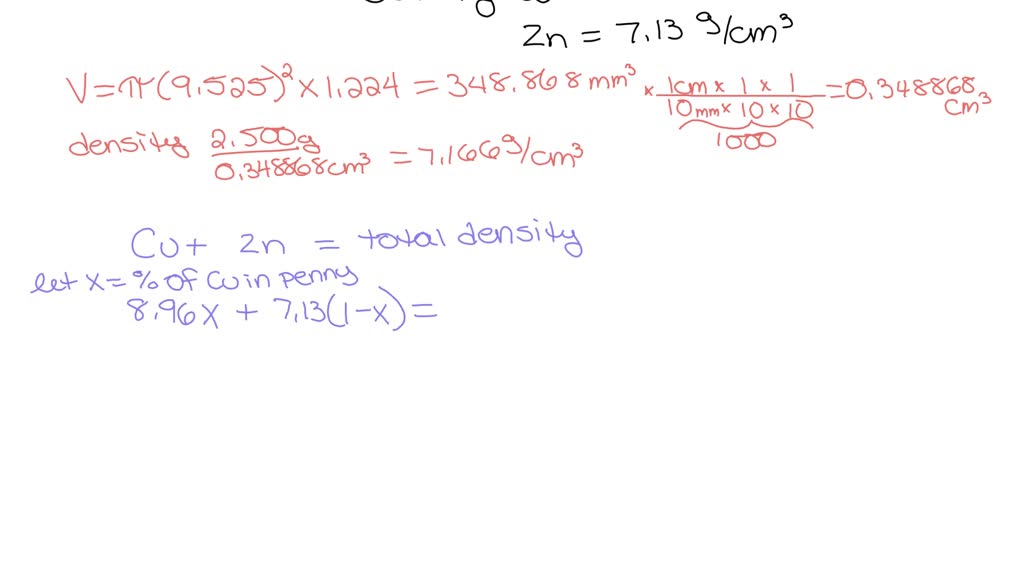 Zn = 7.13 g/cm³
V = π(9.525)² × 1.224 = 348.868 mm³ × 1cm × 1 × 1 / 10mm × 10 × 10 = 0.348868 cm³
1000
density 2.500g / 0.348868cm³ = 7.166g/cm³
Cu + Zn = total density
let x = % of Cu in penny
8.96x + 7.13(1-x) =